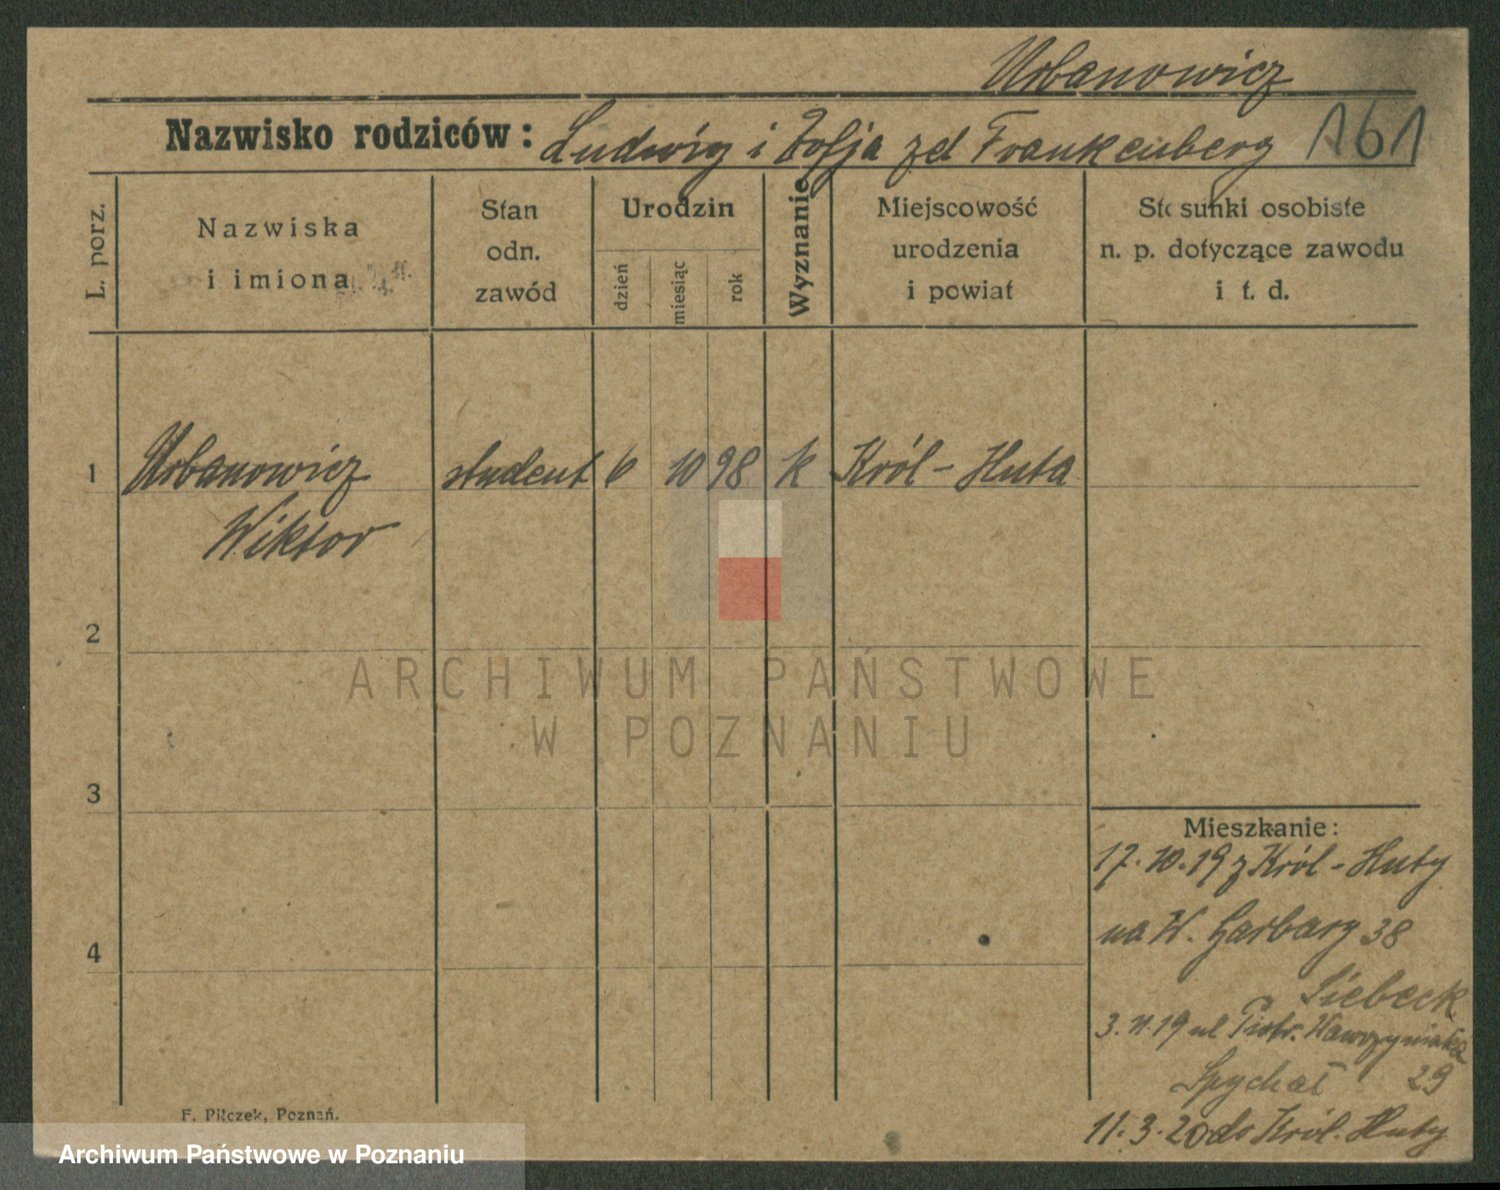 Urbanowicz
Nazwisko rodziców: Ludwig i Zofja zd Frankenberg 161
L. porz.
Nazwiska
i imiona
Stan
odn.
zawód
Urodzin
dzień
miesiąc
rok
Wyznanie
Miejscowość
urodzenia
i powiat
Stosunki osobiste
n. p. dotyczące zawodu
i t. d.
1 Urbanowicz student 6 10 98 k Król-Huta
Wiktor
2
3
4
Mieszkanie:
17.10.19 z Król-Huty
na W. Garbary 38
Siebeck
3.11.19 ul Piotr. Wawrzyniaka
Spychał 29
11.3.20 do Król. Huty
F. Pilczek, Poznań.
ARCHIWUM PAŃSTWOWE
W POZNANIU
Archiwum Państwowe w Poznaniu